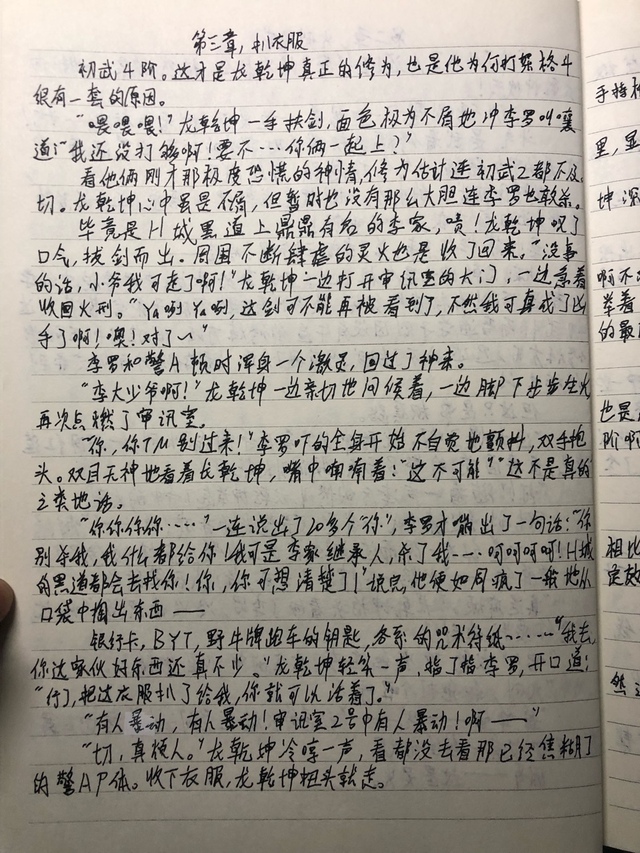 第三章，扒衣服
初武4阶。这才是龙乾坤真正的修为，也是他为何打架格斗
很有一套的原因。
“喂喂喂！”龙乾坤一手扶剑，面色极为不屑地冲李罗叫嚷
道：“我还没打够啊！要不…你俩一起上？”
看他俩刚才那极度恐慌的神情，修为估计连初武2都不及
切。龙乾坤心中虽是不屑，但暂时也没有那么大胆连李罗也敢杀。
毕竟是H城黑道上鼎鼎有名的李家，啧！龙乾坤叹了
口气，拔剑而出。周围不断肆虐的灵火也是收了回来。“没事
的话，小爷我可走了啊！”龙乾坤一边打开审讯室的大门，一边急着
收回火刑。“Ya咧Ya咧，这剑可不能再被看到了，不然我可真成了凶
手了啊！噢！对了～”
李罗和警A顿时浑身一个激灵，回过了神来。
“李大少爷啊！”龙乾坤一边亲切地问候着，一边脚下步步生火
再次点燃了审讯室。
“你，你TM别过来！”李罗吓的全身开始不自觉地颤抖，双手抱
头。双目无神地看着龙乾坤，嘴中喃喃着：“这不可能”“这不是真的”
之类地话。
“你你你你……”一连说出了20多个“你”，李罗才嘣出了一句话：“你
别杀我，我什么都给你！我可是李家继承人，杀了我…呵呵呵呵！H城
的黑道都会去找你！你，你可想清楚了！”说完，他便如同疯了一般地从
口袋中掏出东西——
银行卡，BYT，野牛牌跑车的钥匙，各系的咒术符纸……“我去，
你这家伙好东西还真不少。”龙乾坤轻笑一声，指了指李罗，开口道：
“把这衣服扒了给我，你就可以活着了。”
“有人暴动，有人暴动！审讯室2号中有人暴动！啊——”
“切，真烦人。”龙乾坤冷哼一声，看都没去看那已经焦糊了
的警AP体。收下衣服，龙乾坤扭头就走。
手持
里，显
坤深
啊不
举着
的最
也是
阶啊
相比
实放
然